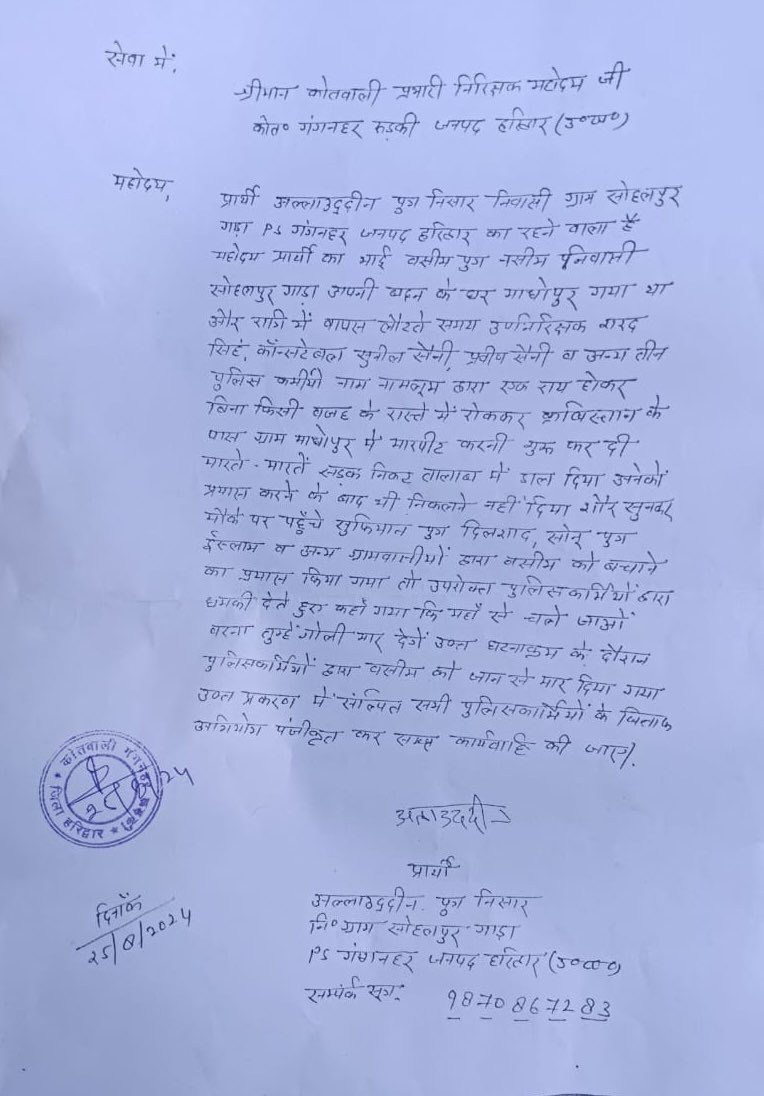 सेवा में,
श्रीमान कोतवाली प्रभारी निरिक्षक महोदय जी
कोत० गंगनहर रुड़की जनपद हरिद्वार (उ०ख०)
महोदय,
प्रार्थी अल्लाउद्दीन पुत्र निसार निवासी ग्राम सोहलपुर
गाड़ा PS गंगनहर जनपद हरिद्वार का रहने वाला है
महोदय प्रार्थी का भाई वसीम पुत्र नसीम निवासी
सोहलपुर गाड़ा अपनी बहन के घर माधोपुर गया था
और रात्रि में वापस लौटते समय उपनिरिक्षक शरद
सिहं, कॉन्सटेबल सुनील सैनी, प्रवीण सैनी व अन्य तीन
पुलिस कर्मीयो नाम नामालूम द्वारा एक राय होकर
बिना किसी वजह के रास्ते में रोककर क्रबिस्तान के
पास ग्राम माधोपुर में मारपीट करनी शुरू कर दी
मारते-मारतें सड़क निकट तालाब में डाल दिया अनेकों
प्रयास करने के बाद भी निकलने नहीं दिया शौर सुनकर
मौके पर पहुँचे सुफियान पुत्र दिलशाद, सोनू पुत्र
ईस्लाम व अन्य ग्रामवासीयों द्वारा वसीम को बचाने
का प्रयास किया गया तो उपरोक्त पुलिसकर्मियों द्वारा
धमकी देते हुए कहाँ गया कि यहाँ से चले जाओं
वरना तुम्हें गोली मार देगें उक्त घटनाक्रम के दौरान
पुलिसकर्मियों द्वारा वसीम को जान से मार दिया गया
उक्त प्रकरण में संल्पित सभी पुलिसकर्मियों के खिलाफ
अभियोग पंजीकृत कर सख्त कार्यवाहि की जाए।
कोतवाली गंगनहर
जिला हरिद्वार
प्रार्थी
अल्लाउद्दीन पुत्र निसार
नि० ग्राम सोहलपुर गाड़ा
PS गंगनहर जनपद हरिद्वार (उ०ख०)
सम्पर्क सूत्र: 9870867283
दिनाँक
25/8/2024